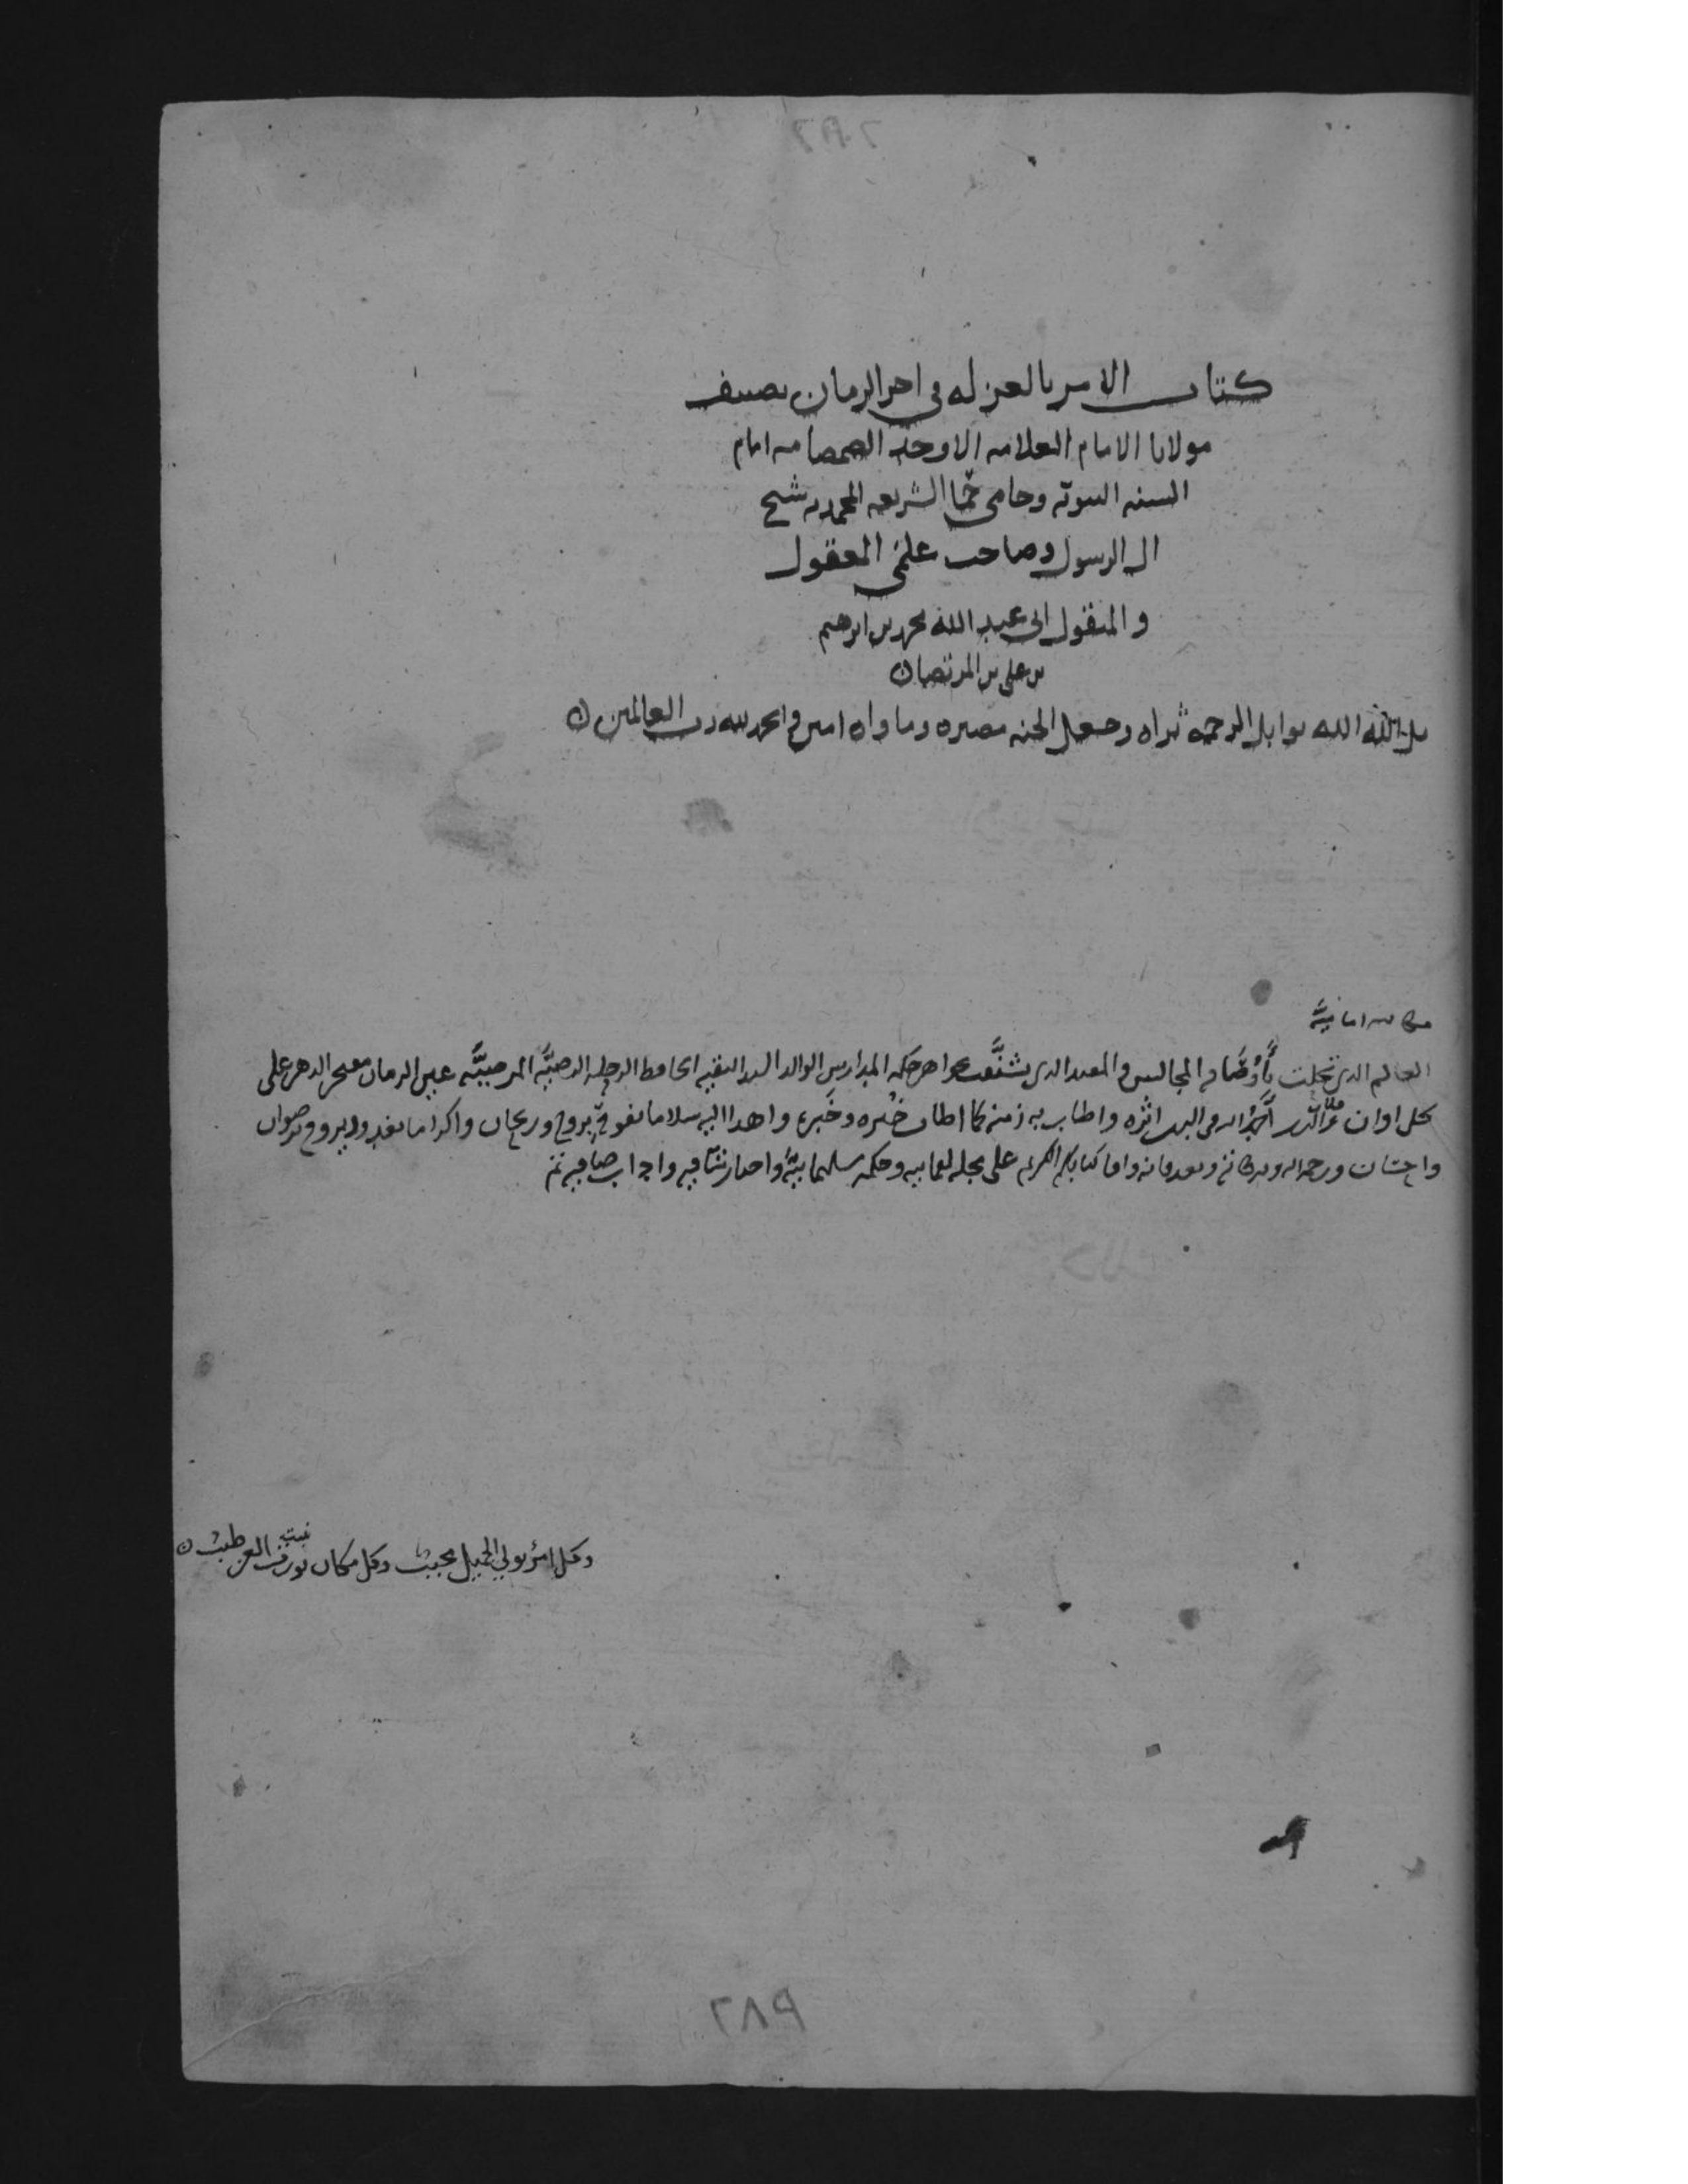 كتاب الامر بالعزله في اخر الزمان تصنيف
مولانا الامام العلامه الاوحد الصمصامه امام
السنه النبويه وحامي حما الشريعه المحمديه شيخ
ال الرسول وصاحب علمي المعقول
والمنقول ابي عبد الله محمد بن ابرهيم
بن علي بن المرتضا ن
بل الله بوابل الرحمه ثراه وجعل الجنه مصيره وماواه امين والحمد لله رب العالمين ن
العالم الذي تحلت المجالس والمفيد الذي تشنفت بجواهر حكمه المدارس الوالد السيد البقيه الحافظ عين الزمان مفخر الدهر على
كل اوان واطاب به زمنه كما اطاب خبره وخبره واهدا اليه سلاما بروح وريحان واكراما ورضوان
واحسان ورحمة الله وبركاته وبعد فانه وافا كتابكم الكريم على مجله لقمانيه وحكمه سليمانيه واداب صافيه
وكل امرئ يولي الجميل محبب وكل مكان ينبت العز طيب ن
٢٨٩